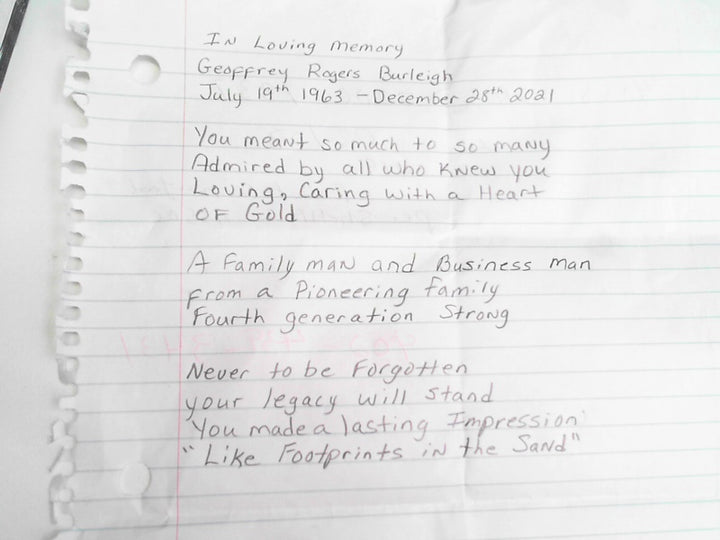 In Loving memory
Geoffrey Rogers Burleigh
July 19th 1963 - December 28th 2021
You meant so much to so many
Admired by all who Knew you
Loving, Caring with a Heart
OF Gold
A Family man and Business man
From a Pioneering family
Fourth generation Strong
Never to be Forgotten
your legacy will stand
You made a lasting Impression
"Like Footprints in the Sand"